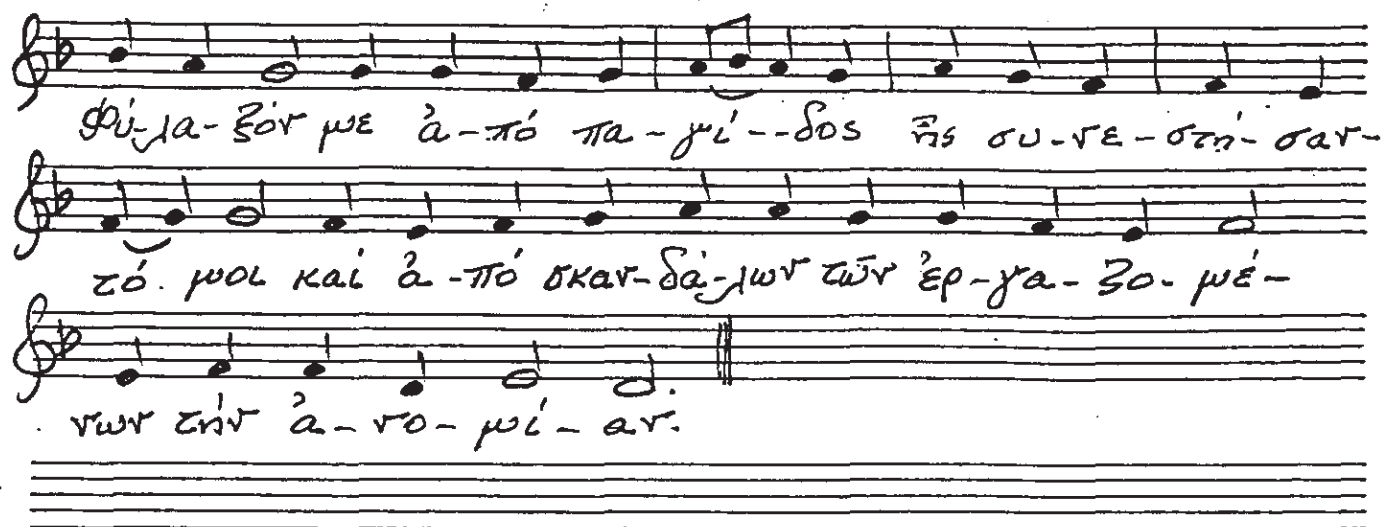 Φύ-λα-ξόν με ἀ-πό πα-γί--δος ἧς συ-νε-στή-σαν-
τό. μοι καί ἀ-πό σκαν-δά-λων τῶν ἐρ-γα-ζο-μέ-
νων τήν ἀ-νο-μί-αν.